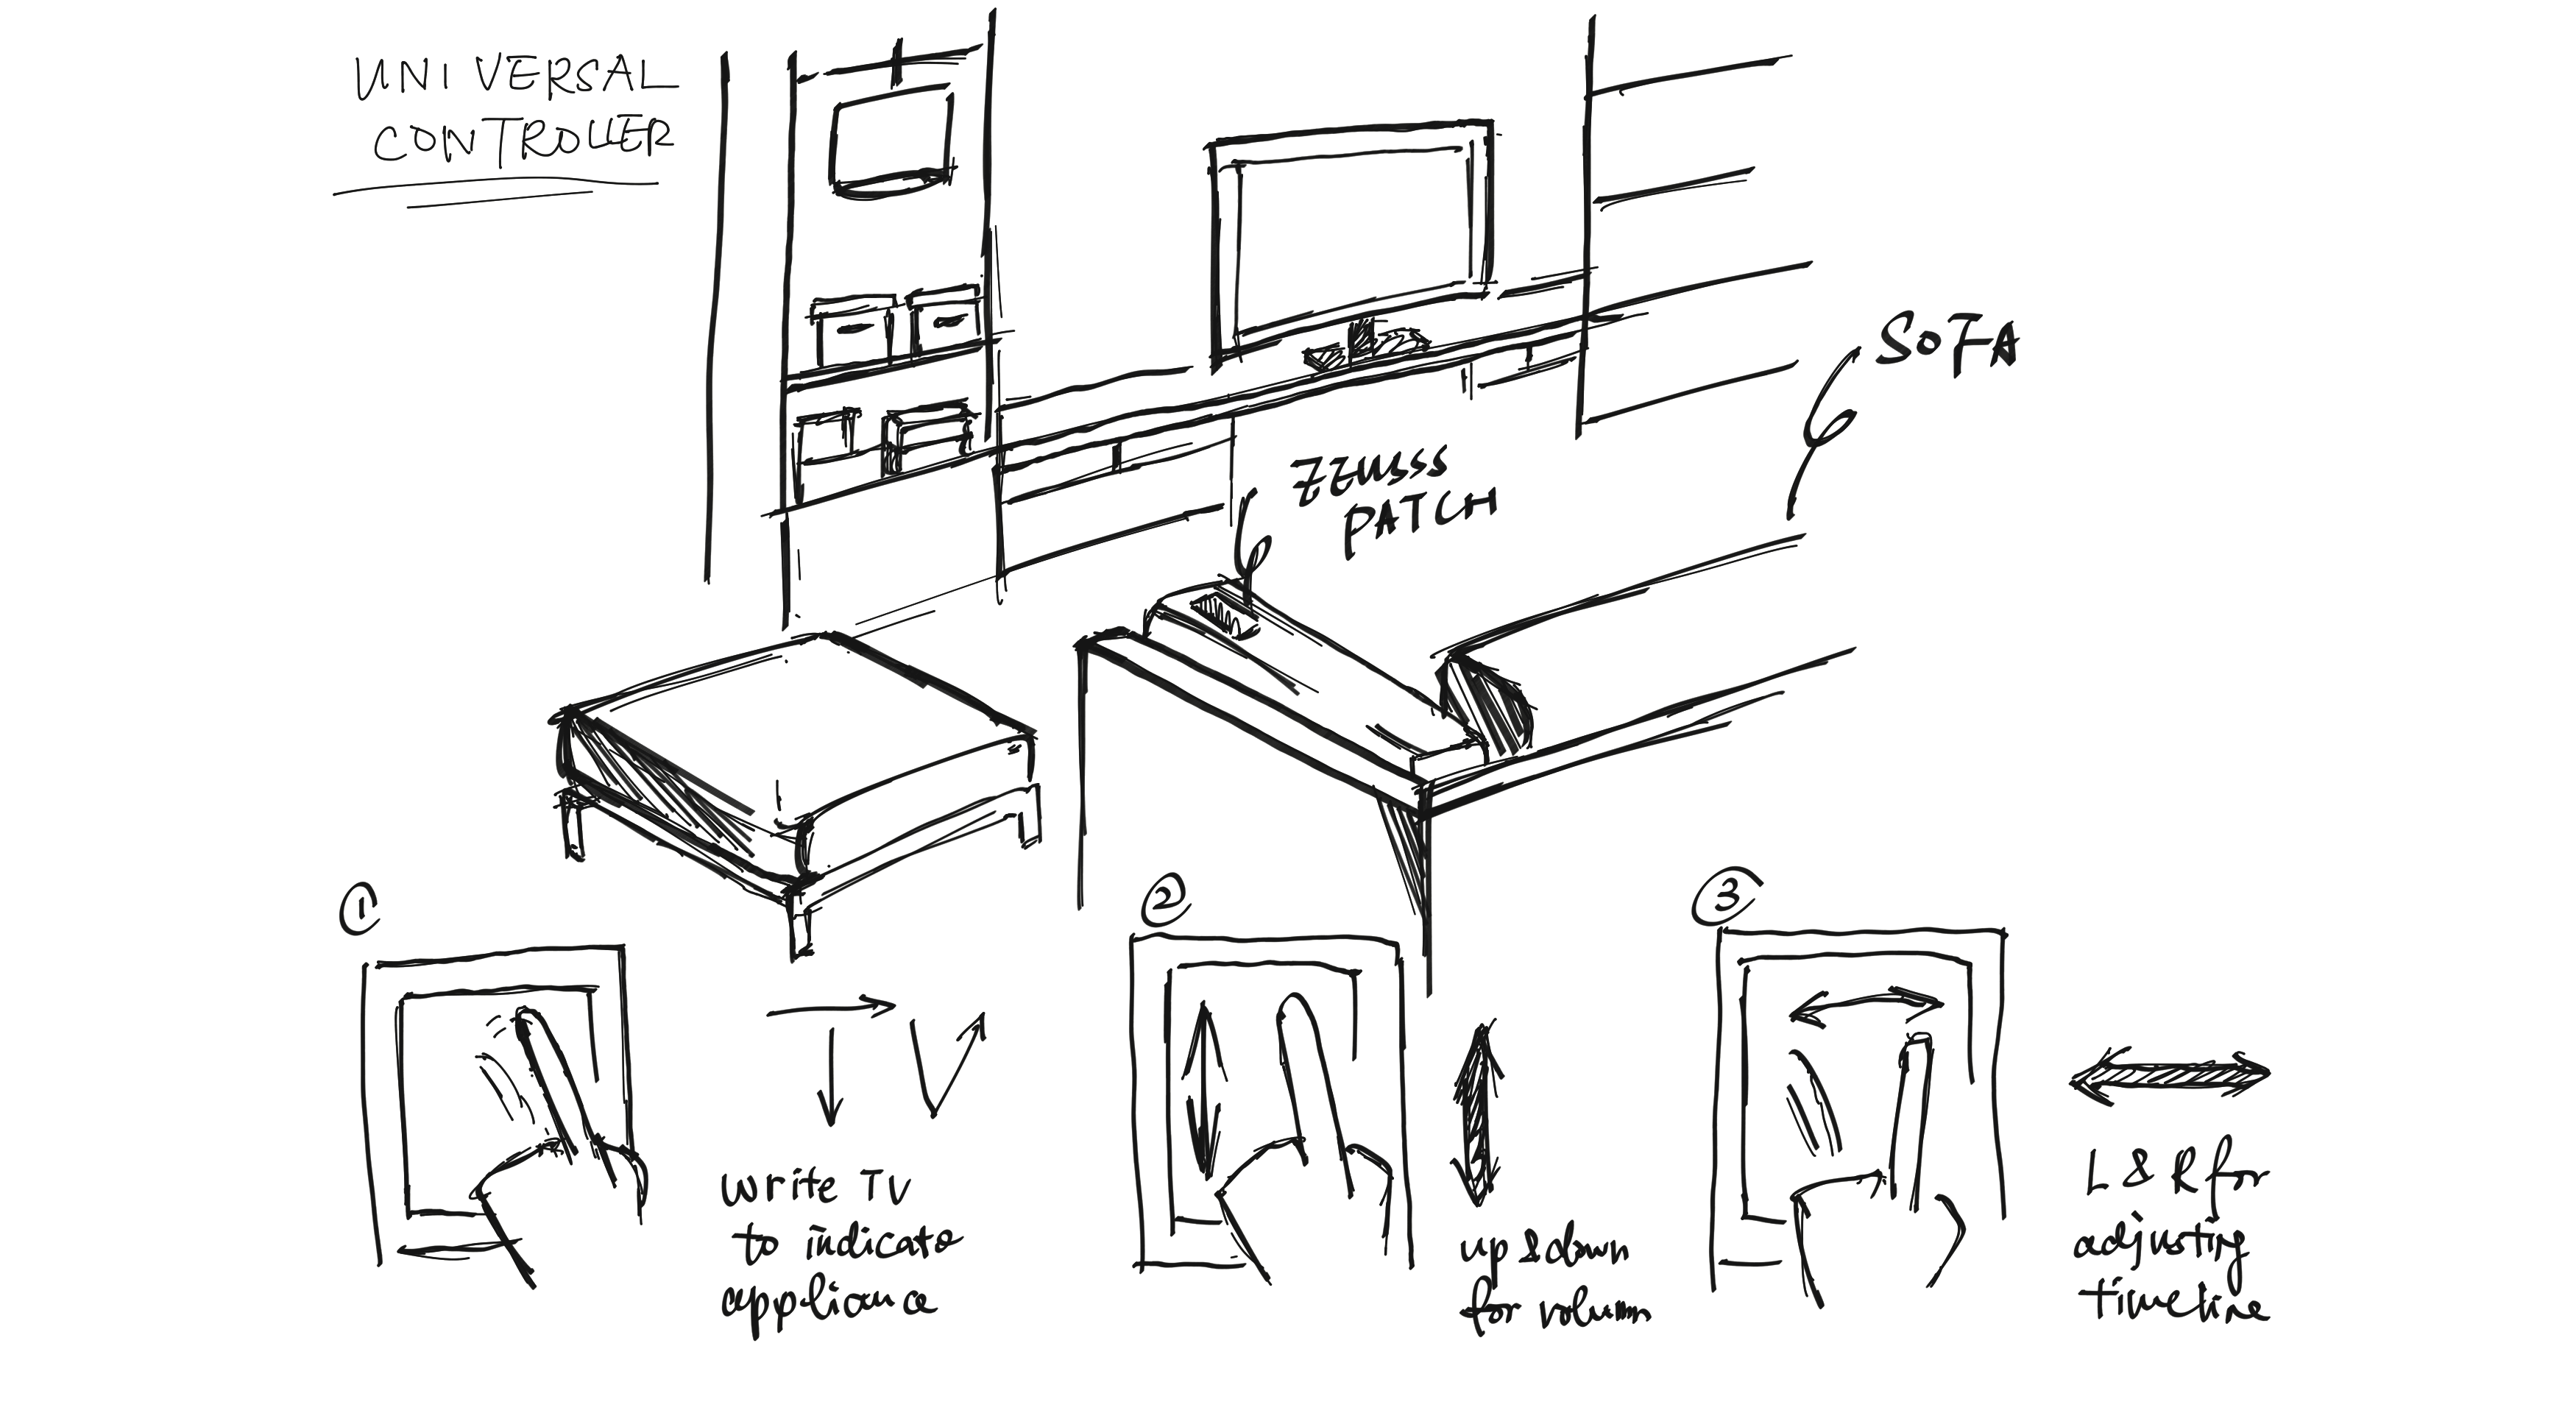 UNIVERSAL
CONTROLLER
SOFA
ZZUSSS
PATCH
1
write TV
to indicate
appliance
2
up & down
for volumn
3
L & R for
adjusting
timeline